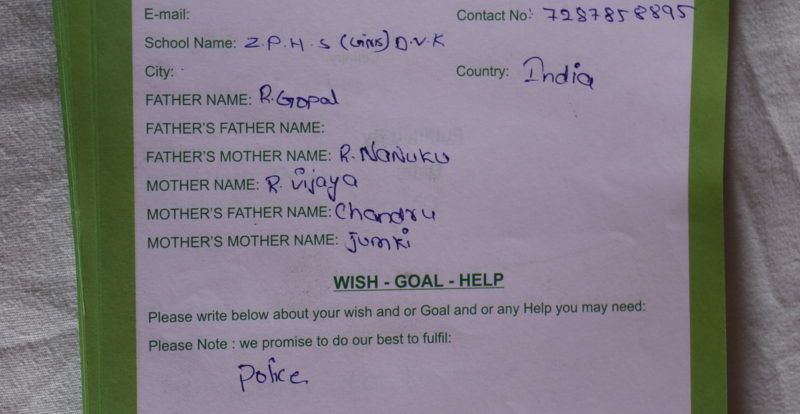 E-mail: Contact No: 7287858895
School Name: Z.P.H.S (Girls) D.V.K
City: Country: India
FATHER NAME: R.Gopal
FATHER'S FATHER NAME:
FATHER'S MOTHER NAME: R.NANUKU
MOTHER NAME: R.Vijaya
MOTHER'S FATHER NAME: Chandru
MOTHER'S MOTHER NAME: Jumki
WISH - GOAL - HELP
Please write below about your wish and or Goal and or any Help you may need:
Please Note : we promise to do our best to fulfil:
Police